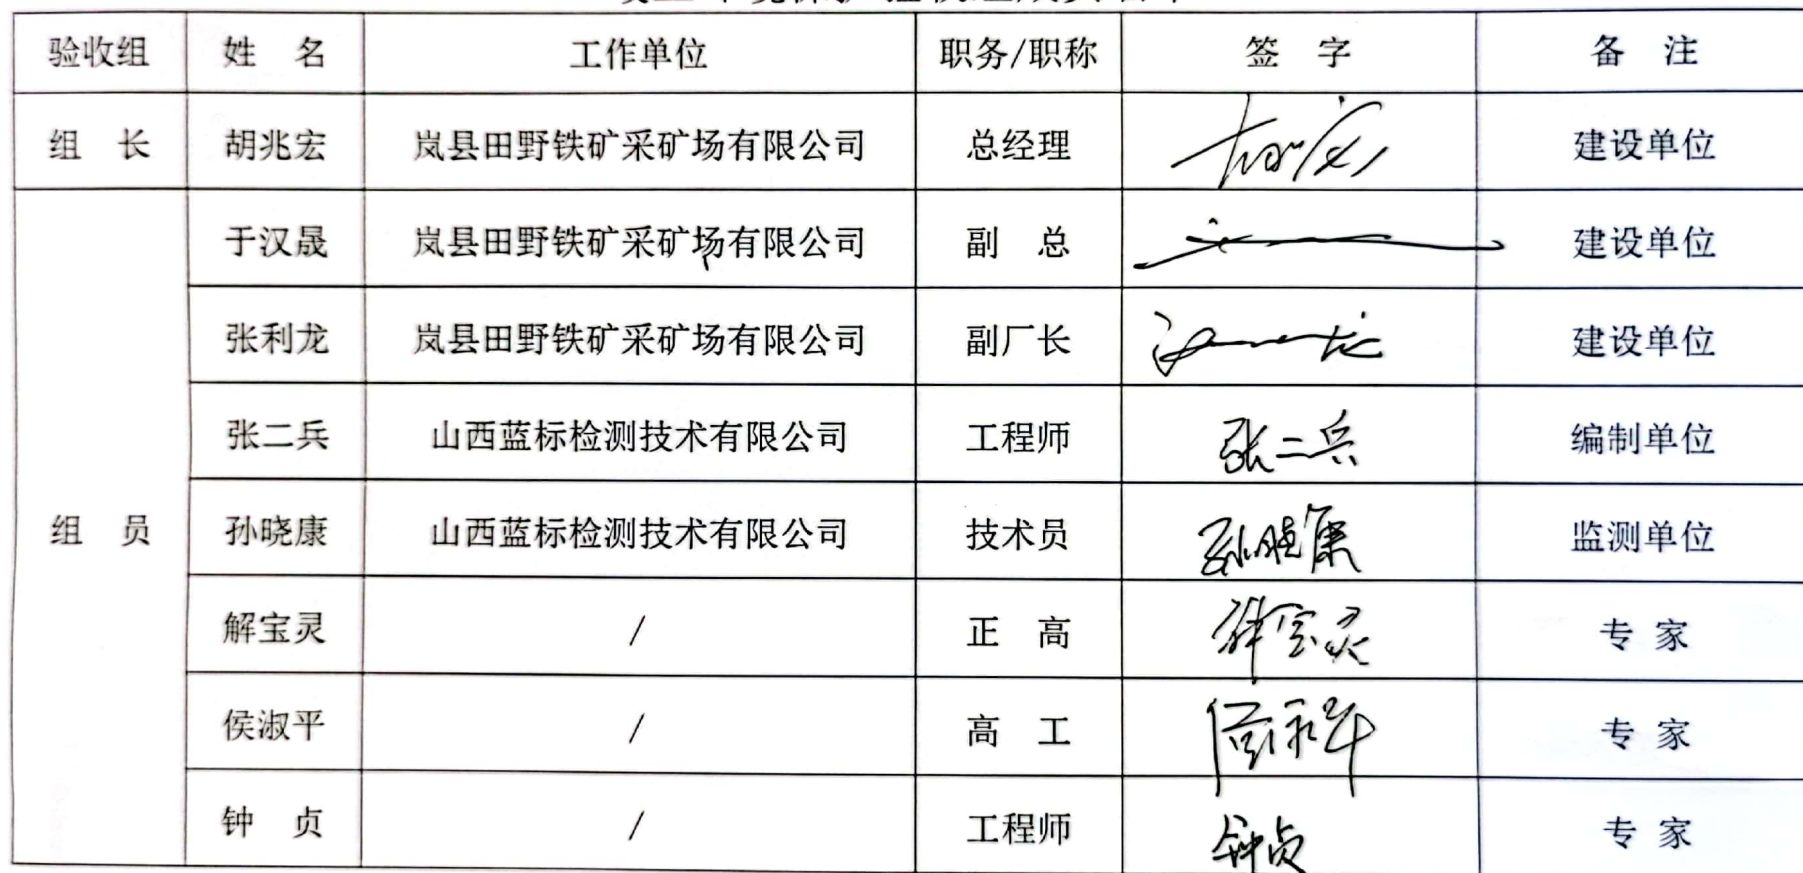 验收组 姓 名 工作单位 职务/职称 签 字 备 注
组 长 胡兆宏 岚县田野铁矿采矿场有限公司 总经理 建设单位
于汉晟 岚县田野铁矿采矿场有限公司 副 总 建设单位
张利龙 岚县田野铁矿采矿场有限公司 副厂长 建设单位
张二兵 山西蓝标检测技术有限公司 工程师 张二兵 编制单位
组 员 孙晓康 山西蓝标检测技术有限公司 技术员 孙晓康 监测单位
解宝灵 / 正 高 解宝灵 专 家
侯淑平 / 高 工 专 家
钟 贞 / 工程师 钟贞 专 家